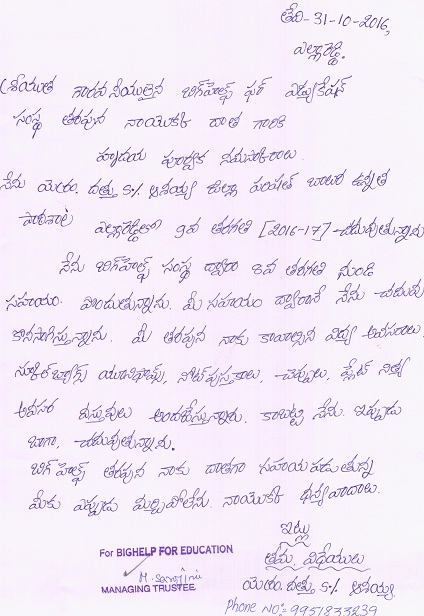 తేది-31-10-2016,
ఎల్లారెడ్డి.
శ్రీయుత గౌరవనీయులైన బిగ్‌హెల్ప్ ఫర్ ఎడ్యుకేషన్
సంస్థ తరపున నాయొక్క దాత గారికి
హృదయ పూర్వక నమస్కారాలు.
నేను యెం. దత్తు s% ఆశయ్య జిల్లా పరిషత్ బాలుర ఉన్నత
పాఠశాల ఎల్లారెడ్డిలో 9వ తరగతి [2016-17] చదువుతున్నాను
నేను బిగ్‌హెల్ప్ సంస్థ ద్వారా 8వ తరగతి నుండి
సహాయం పొందుతున్నాను. మీ సహాయం ద్వారానే నేను చదువు
కొనసాగిస్తున్నాను. మీ తరపున నాకు కావాల్సిన విద్య అవసరాలు.
స్కూల్‌బ్యాగ్స్ యూనిఫామ్స్, నోట్‌పుస్తకాలు, చెప్పులు, ప్లేట్ నిత్య
అవసర వస్తువులు అందజేస్తున్నారు. కాబట్టి నేను ఇప్పుడు
బాగా, చదువుతున్నాను.
బిగ్ హెల్ప్ తరపున నాకు దాతగా సహాయ పడుతున్న
మీకు ఎప్పుడు మర్చిపోలేను. నాయొక్క ధన్యవాదాలు.
ఇట్లు
తమ విధేయులు
యెం. దత్తు s% ఆశయ్య
Phone NO:- 9951833239
For BIGHELP FOR EDUCATION
M. Sarojini
MANAGING TRUSTEE